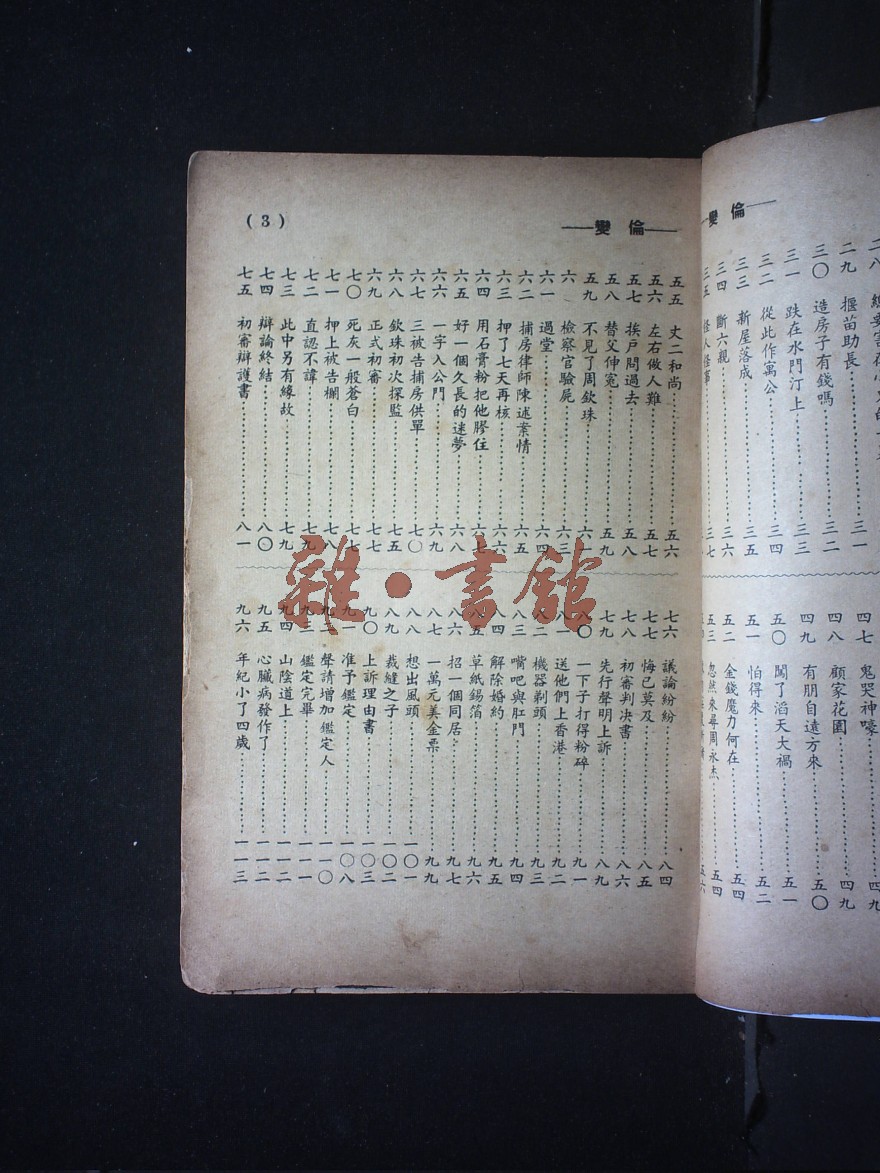 ——變 倫——
二九 揠苗助長……三一
三〇 造房子有錢嗎……三二
三一 跌在水門汀上……三三
三二 從此作寓公……三四
三三 新屋落成……三五
三四 斷六親……三六
三五 怪人怪事……三七
四七 鬼哭神嚎……四九
四八 顧家花園……四九
四九 有朋自遠方來……五〇
五〇 闖了滔天大禍……五一
五一 怕得來……五二
五二 金錢魔力何在……五四
五三 忽然來尋周永杰……五四
——變 倫——
(3)
五五 丈二和尚……五六
五六 左右做人難……五七
五七 挨戶問過去……五八
五八 替父伸寃……五九
五九 不見了周欽珠……六一
六〇 檢察官驗屍……六三
六一 過堂……六四
六二 捕房律師陳述案情……六五
六三 押了七天再核……六六
六四 用石膏粉把他膠住……六七
六五 好一個久長的迷夢……六八
六六 一字入公門……六九
六七 三被告捕房供單……七〇
六八 欽珠初次探監……七五
六九 正式初審……七七
七〇 死灰一般蒼白……七七
七一 押上被告欄……七八
七二 直認不諱……七九
七三 此中另有緣故……七九
七四 辯論終結……八〇
七五 初審辯護書……八一
七六 議論紛紛……八四
七七 悔已莫及……八五
七八 初審判决書……八六
七九 先行聲明上訴……八九
八〇 一下子打得粉碎……九一
八一 送他們上香港……九二
八二 機器剃頭……九三
八三 嘴吧與肛門……九四
八四 解除婚約……九五
八五 草紙錫箔……九六
八六 招一個同居……九七
八七 一萬元美金票……九九
八八 想出風頭……一〇一
八九 裁縫之子……一〇二
九〇 上訴理由書……一〇三
九一 准予鑑定……一〇八
九二 聲請增加鑑定人……一一〇
九三 鑑定完畢……一一一
九四 山陰道上……一一二
九五 心臟病發作了……一一二
九六 年紀小了四歲……一一三
雜·書館